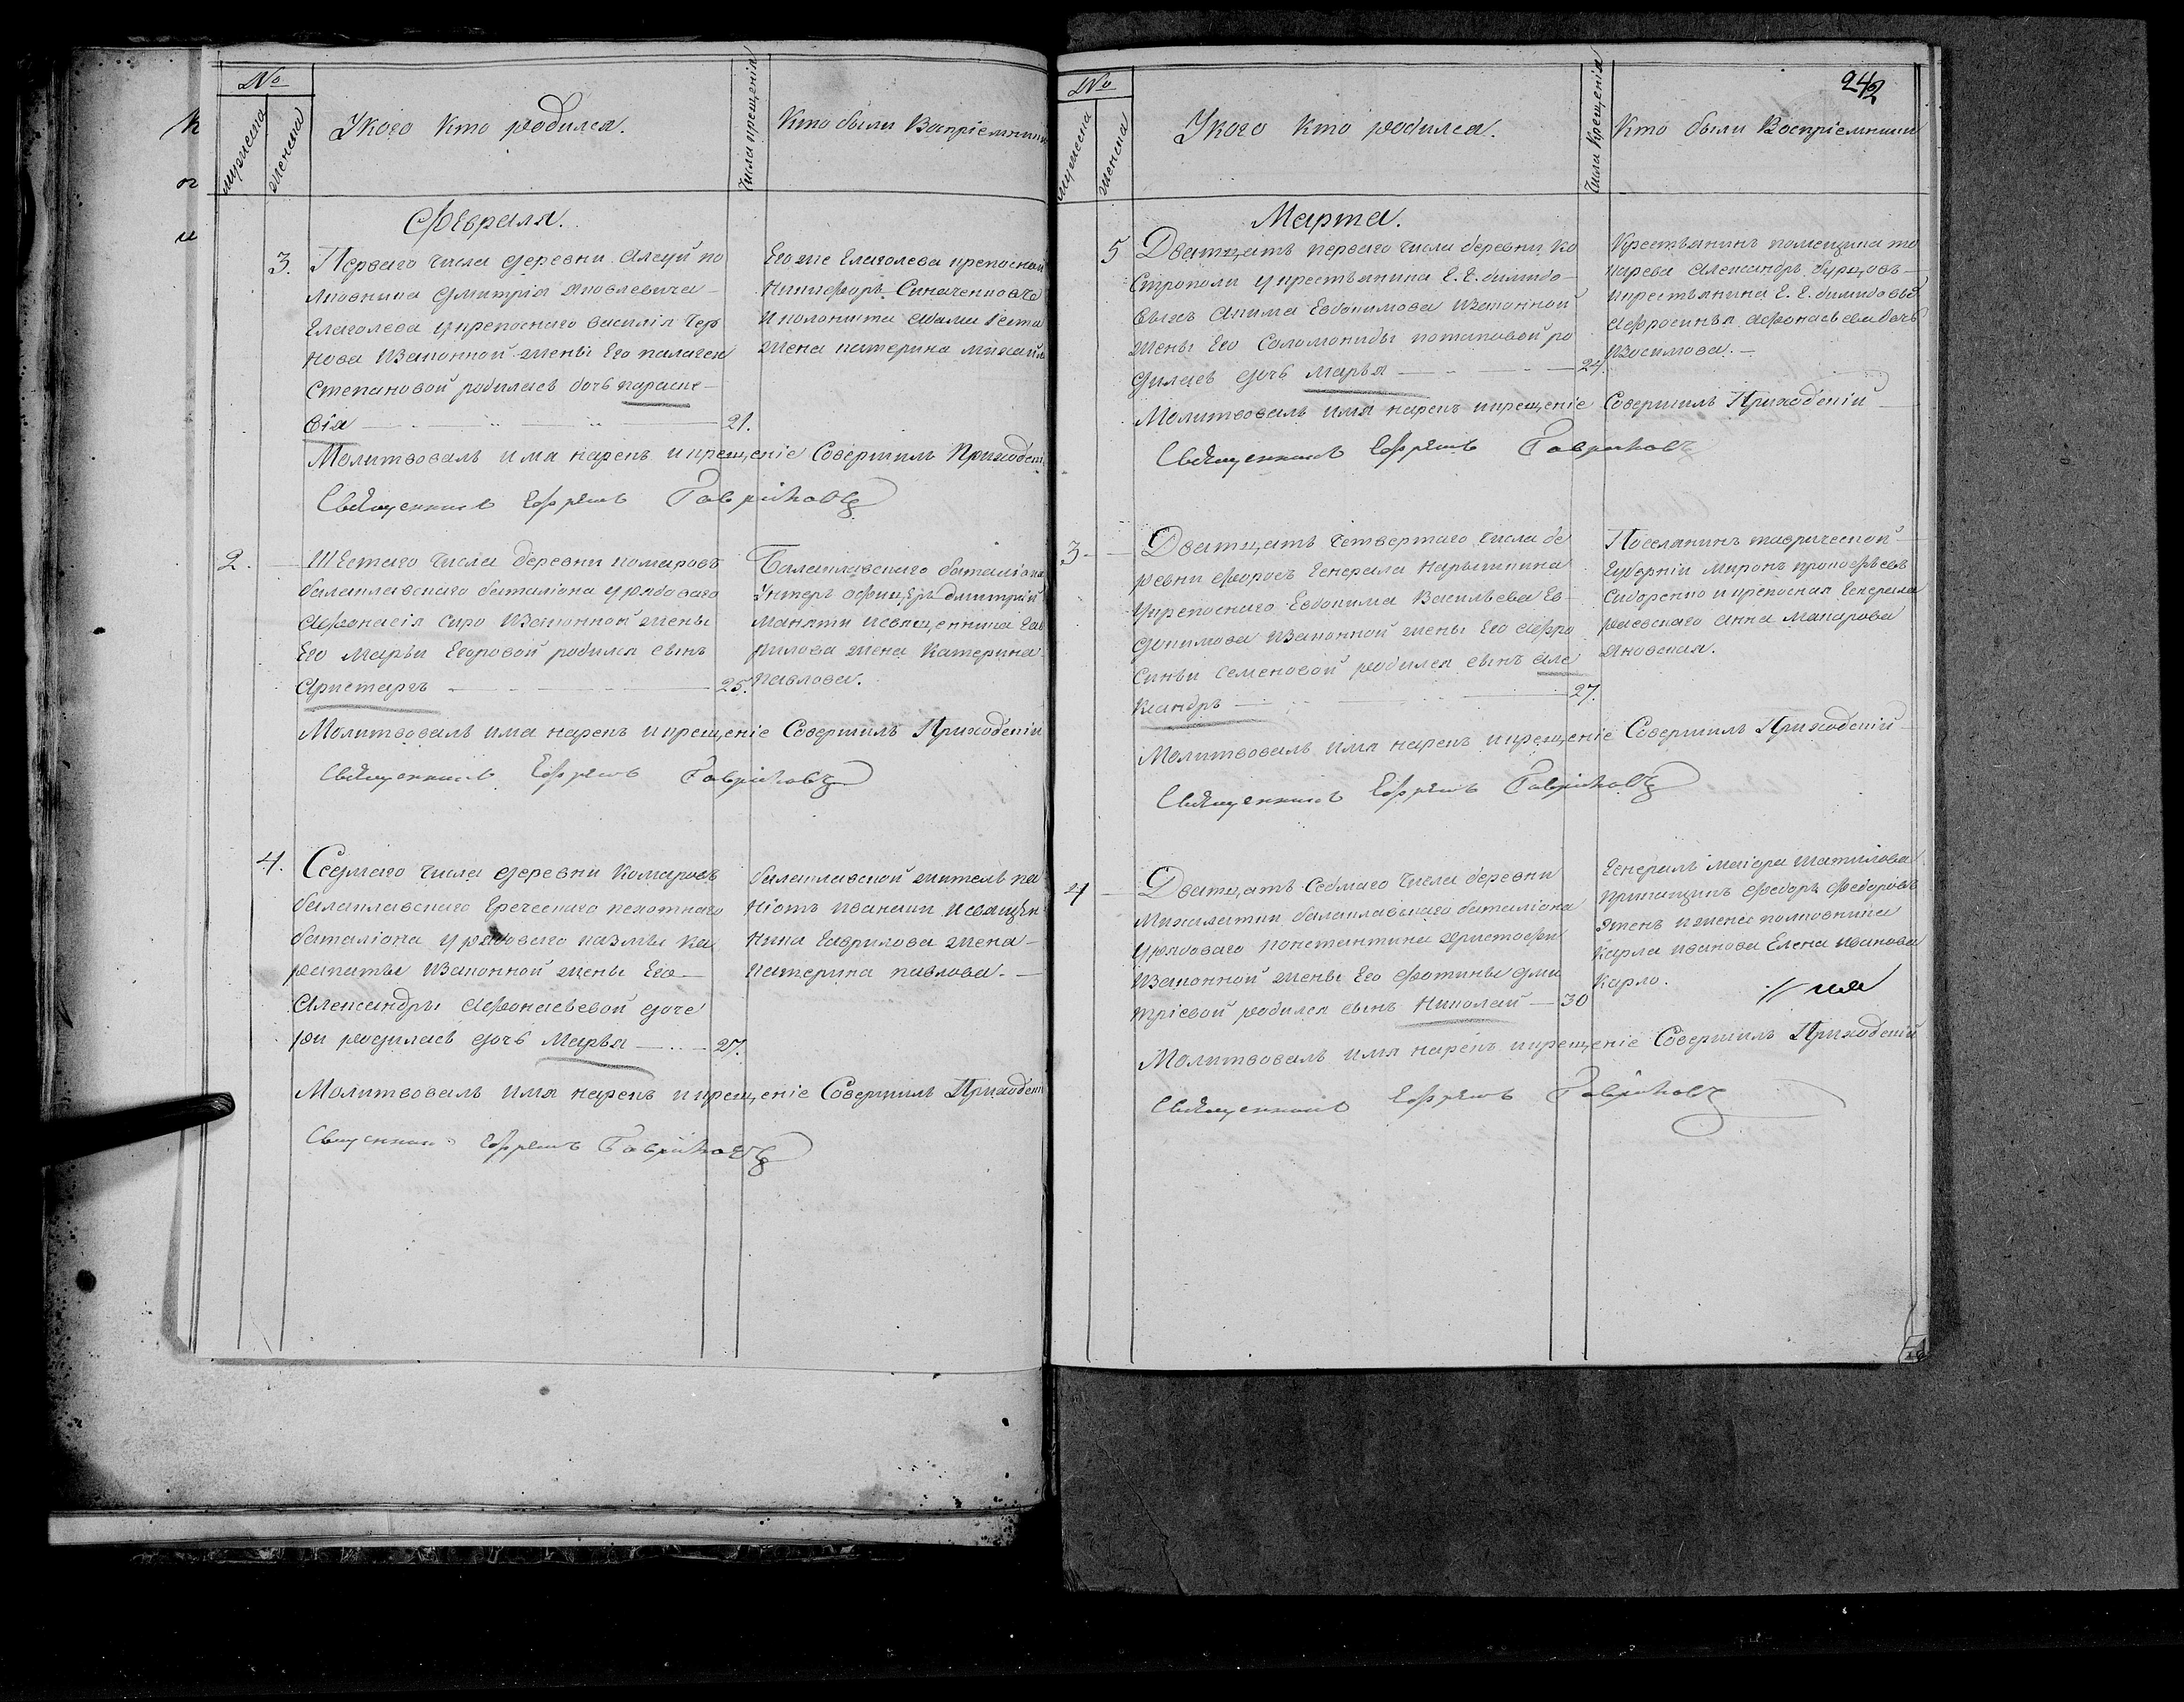 №
мужеска
женска
У кого кто родился.
Числа крещенія
Кто были Воспріемники
Февраля.
3.
Перваго числа деревни Алсуй по
лковника Дмитрія Яковлевича
Глаголева укрепоснаго Василія Чер
нова изаконной жены Его палаген
Степановой родилась дочь параске
вія 21.
Его же Глаголева крепосной
Никифоръ
и колониста Адама
жена катерина
Молитвовалъ имя нарекъ икрещеніе Совершилъ Приход
Священникъ Ефремъ Гавриковъ
2.
Шестаго числа деревни комаровъ
балаклавскаго баталіона урядоваго
Афонасія сиро изаконной жены
Его Марьи Егоровой родился сынъ
Аристархъ 25.
Балаклавскаго баталіона
Унтеръ Офицеръ дмитрій
исвященника Гав
рилова жена Катерина
павлова.
Молитвовалъ има нарекъ икрещеніе Совершилъ Приходскій
Священникъ Ефремъ Гавриковъ
4.
Седмаго числа деревни Комаровъ
балаклавскаго Греческаго пехотнаго
баталіона урядоваго
изаконной жены Его
Александры Афонасьевой доче
ри родилась дочь Марья 27.
балаклавской житель па
ніотъ исвящен
ника Гаврилова жена
катерина павлова.
Молитвовалъ имя нарекъ икрещеніе Совершилъ Приход
Священникъ Ефремъ Гавриковъ
242
№
мужеска
женска
У кого кто родился.
Числа Крещенія
Кто были Воспріемники
Марта.
5
Двատцать перваго числа деревни Ка
строполи укрестьянина Г. Г. димидо
выхъ Акима Евдокимова изаконной
жены Его Саломониды потаповой ро
дилась дочь Марья 24.
Крестьянинъ помещика то
карева Александръ бурцовъ
икрестьянина Г. Г. димидовыхъ
Афросинья Афонасьева дочь
изосимова.
Молитвовалъ имя нарекъ икрещеніе Совершилъ Приходскій
Священникъ Ефремъ Гавриковъ
3
Дватцать четвертаго числа де
ревни Форосъ Генерала нарышкина
укрепоснаго Евдокима Васильева Ев
докимова изаконной жены Его Афро
синьи Семеновой родился сынъ Але
ксандръ 27.
Поселянинъ таврической
Губерніи Миронъ прокофьевъ
Сидоренко и крепосная Генерала
раевскаго Анна Макарова
яновская.
Молитвовалъ имя нарекъ икрещеніе Совершилъ Приходскій
Священникъ Ефремъ Гавриковъ
4
Дватцать Седмаго числа деревни
Михалатки балаклавскаго баталіона
урядоваго константина христофи
изаконной жены Его Фотины дми
тріевой родился сынъ Николай 30
Генералъ маіора Шатилова
прикащикъ Федоръ Федоровъ
и жена полковника
Карла иванова Елена иванова
Карло.
Молитвовалъ имя нарекъ икрещеніе Совершилъ Приходскій
Священникъ Ефремъ Гавриковъ